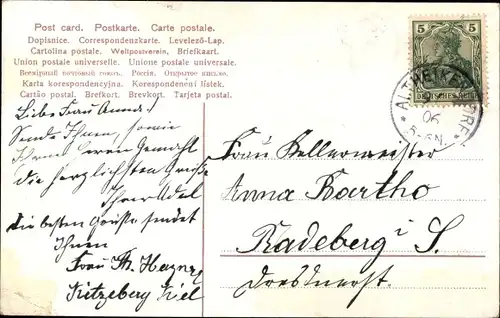 Post card. Postkarte. Carte postale.
Dopisnice. Correspondenzkarte. Levelező-Lap.
Cartolina postale. Weltpostverein. Briefkaart.
Union postale universelle. Unione postale universale.
Всемірный почтовый союзъ. Россія. Открытое письмо.
Karta korespondencyjna. Korespondenční lístek.
Cartão postal. Brefkort. Brevkort. Tarjeta postal.
5 5
DEUTSCHES REICH
ALTHEIKENDORF
06
5-6N.
Liebe Frau Anna!
Sende Ihnen, sowie
Ihrem Herrn Gemahl
die herzlichsten Grüße
Ihre Adel
die besten Grüße sendet
Ihnen
Frau Th.
Kitzeberg Kiel
Frau Kellermeister
Anna Bartho
Radeberg i S.